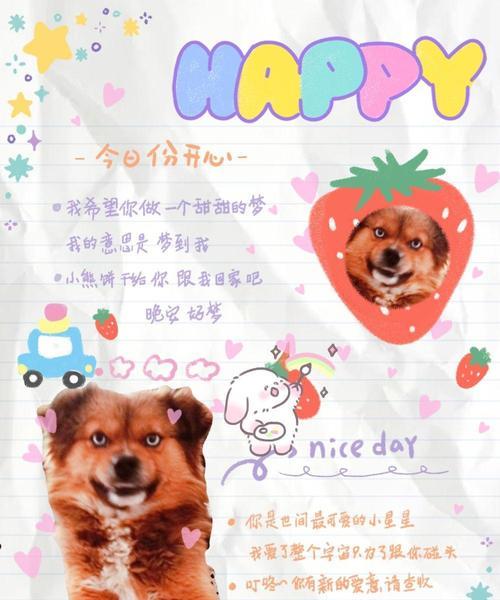 HAPPY
- 今日份开心 -
我希望你做一个甜甜的梦
我的意思是 梦到我
小熊饼干给你 跟我回家吧
晚安 好梦
nice day
你是世间最可爱的小星星
我爱了整个宇宙只为了跟你碰头
叮咚~你有新的爱意,请查收